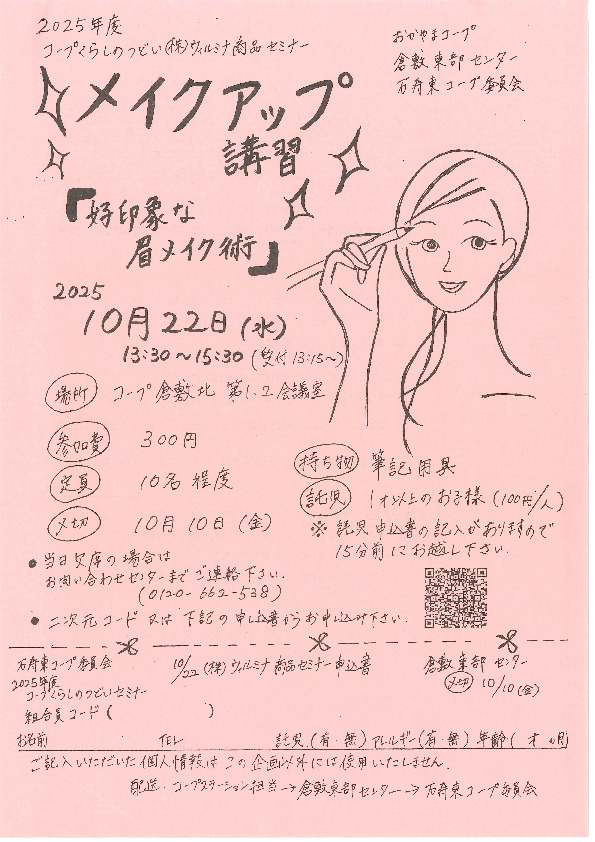 2025年度
コープくらしのつどい(株)ウィルミナ商品セミナー
おかやまコープ
倉敷東部センター
石寿東コープ委員会
メイクアップ
講習
『好印象な
眉メイク術』
2025
10月22日(水)
13:30～15:30(受付13:15～)
場所 コープ倉敷北 第1.2会議室
参加費 300円
定員 10名程度
〆切 10月10日(金)
持ち物 筆記用具
託児 1才以上のお子様(100円/人)
※託児申込書の記入がありますので
15分前にお越し下さい.
●当日欠席の場合は
お問い合わせセンターまでご連絡下さい.
(0120-662-538)
●二次元コード又は下記の申込書からお申込み下さい.
石寿東コープ委員会
2025年度
コープくらしのつどいセミナー
10/22(株)ウィルミナ商品セミナー申込書
倉敷東部センター
〆切 10/10(金)
組合員コード( )
お名前 TEL 託児(有・無)アレルギー(有・無)年齢( 才 ヵ月)
ご記入いただいた個人情報はこの企画以外には使用いたしません.
配送・コープステーション担当→倉敷東部センター→石寿東コープ委員会